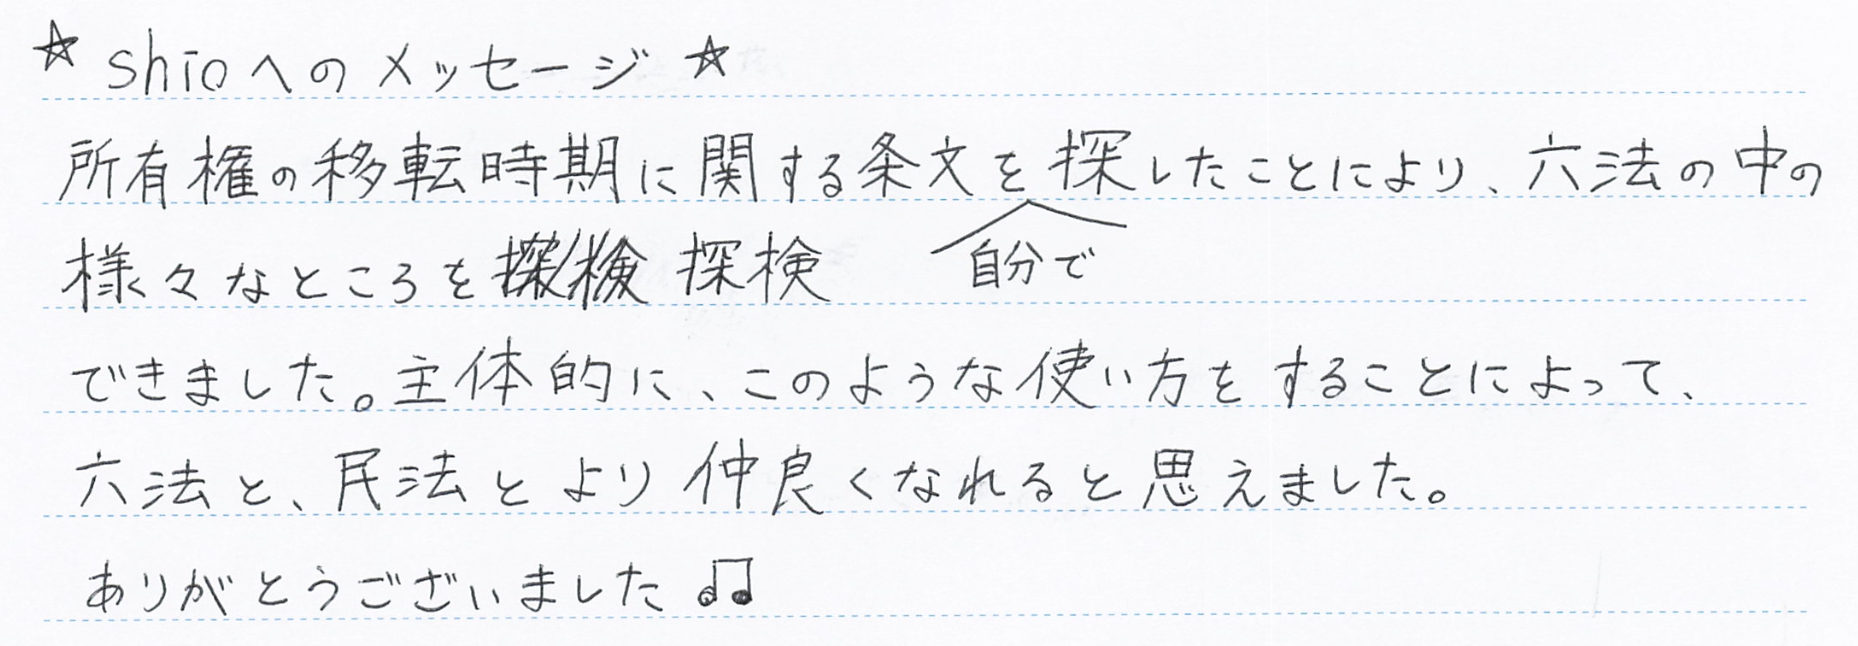 ☆ shioへのメッセージ ☆
所有権の移転時期に関する条文を探したことにより、六法の中の
様々なところを探検 探検
自分で
できました。主体的に、このような使い方をすることによって、
六法と、民法とより仲良くなれると思えました。
ありがとうございました♫